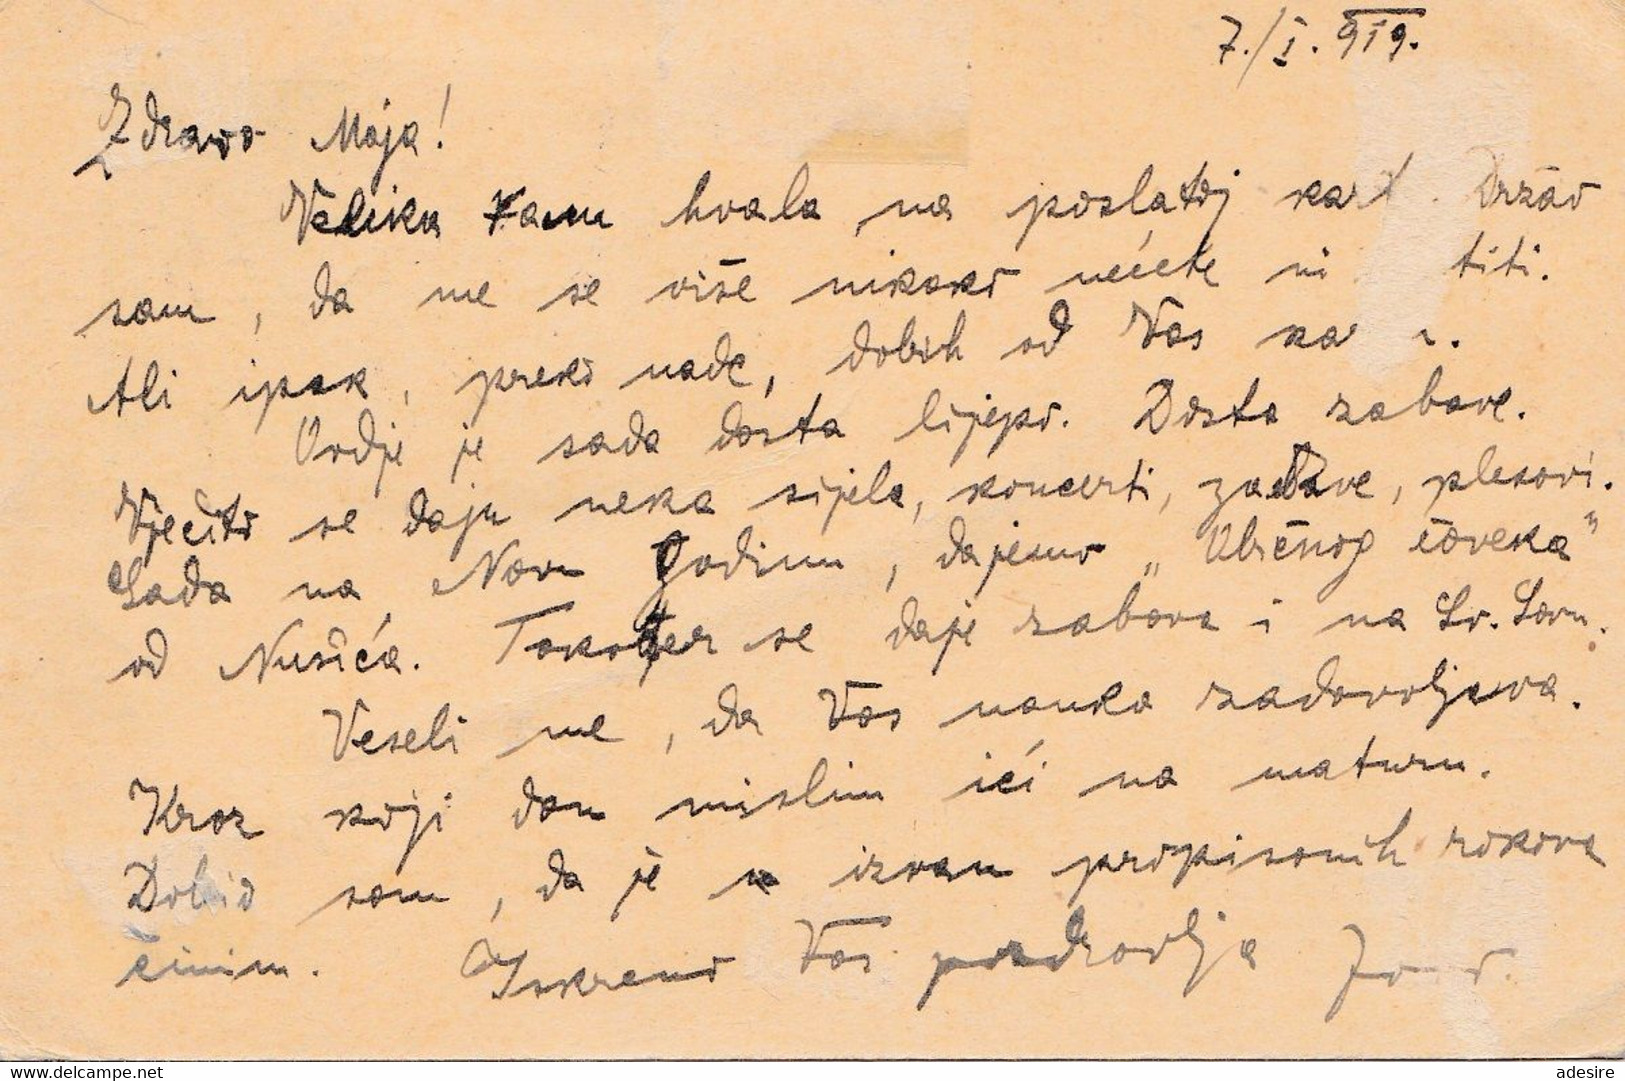 7./I. 919.
Zdravo Moja!
Velika Vam hvala na poslatoj kart. Držao
sam, da me se više nikako nećete ni titi.
Ali ipak, preko nade, dobih od Vas ka
Ovdje je sada dosta lijepo. Dosta zabave.
Vječito se daju neka sijela, koncerti, zabave, plesovi.
Sada na Novu Godinu, dajemo „Običnog čoveka"
od Nušića. Također se daje zabava i na Sv. Savu.
Veseli me, da Vas nauka zadovoljava.
Kroz koji dan mislim ići na maturu.
Dobio sam, da je u izvan propisanih rokova
činim. Iskreno Vas pozdravlja
www.delcampe.net
adesire